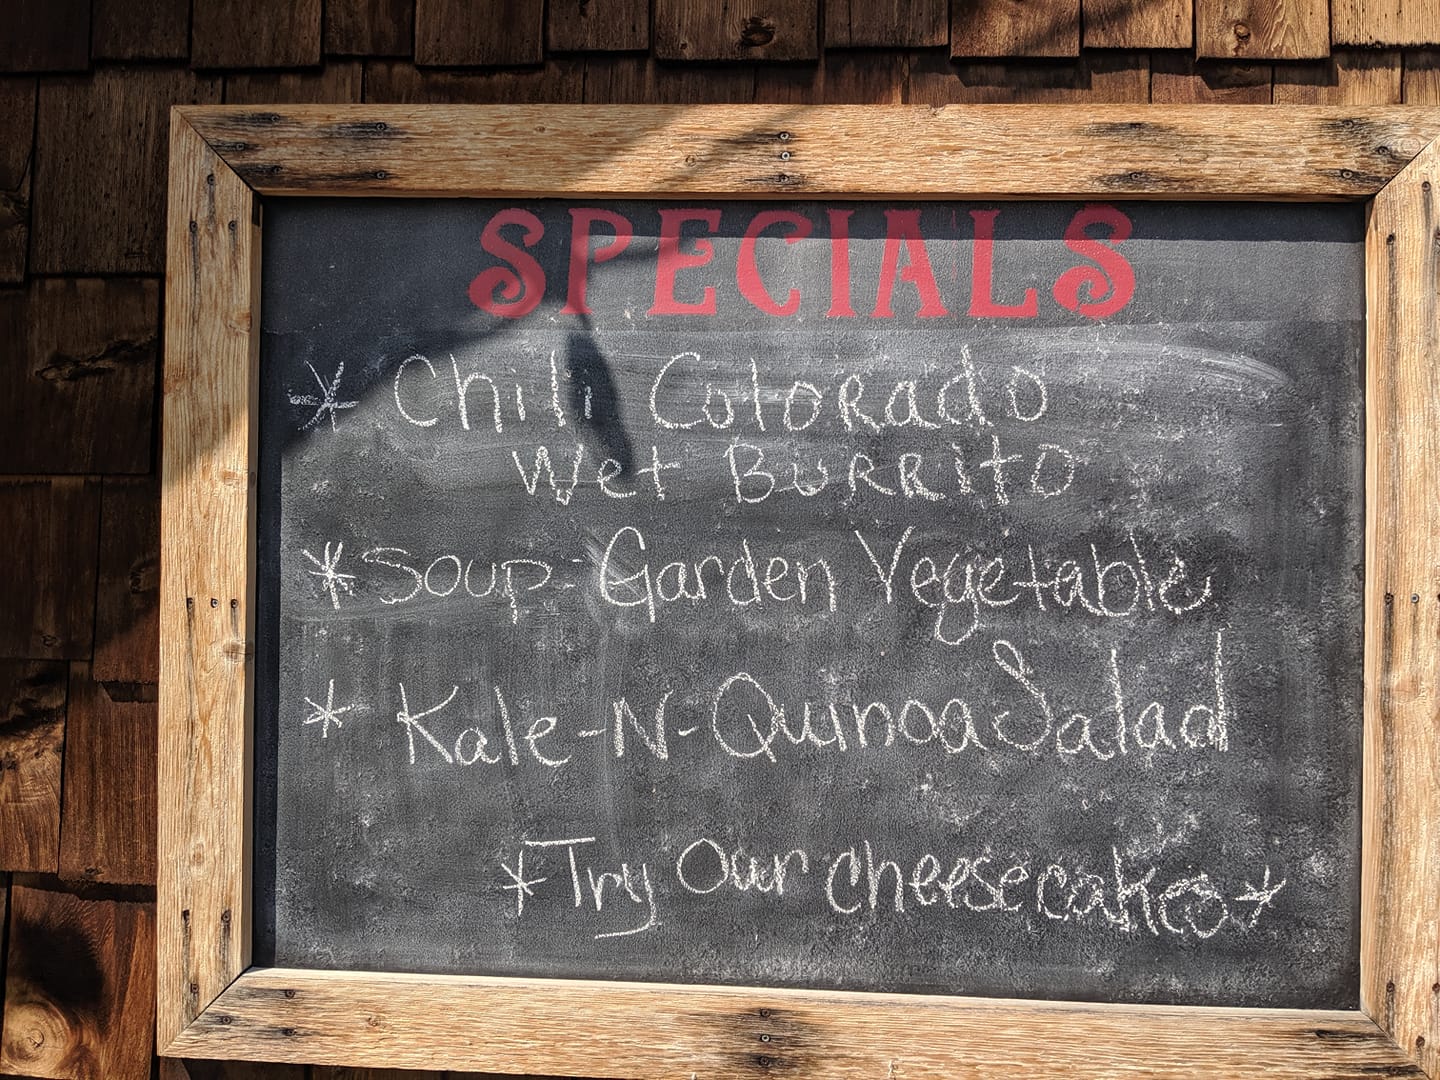 SPECIALS
* Chili Colorado
Wet Burrito
* Soup - Garden Vegetable
* Kale-N-Quinoa Salad
* Try Our cheesecakes *